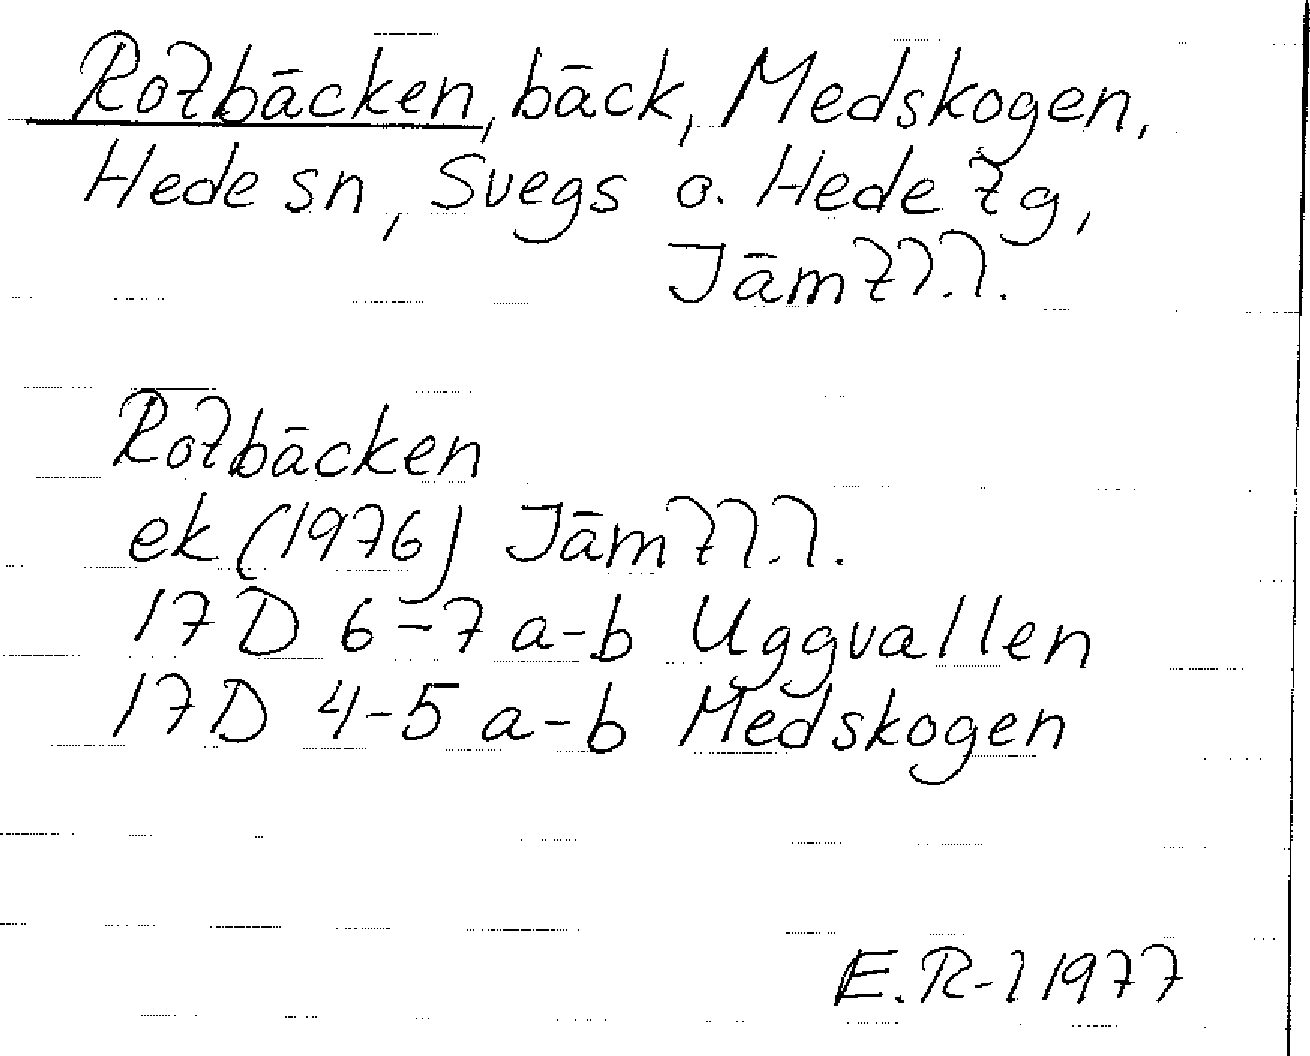 Rotbäcken, bäck, Medskogen,
Hede sn, Svegs o. Hede tg,
Jämtl.l.
Rotbäcken
ek (1976) Jämtl.l.
17 D 6-7 a-b Uggvallen
17 D 4-5 a-b Medskogen
E.R-l 1977